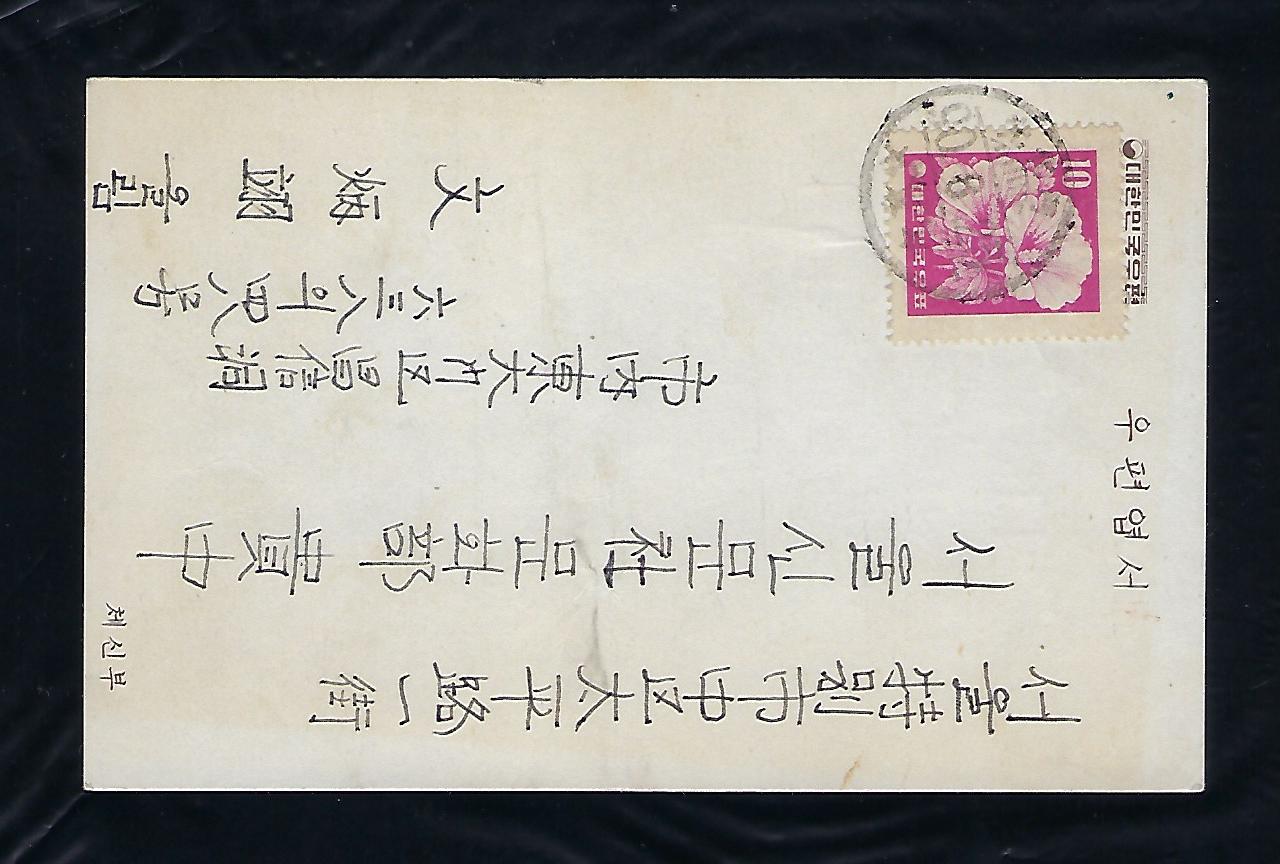 대한민국우편
10
대한민국우표
우편엽서
서울特別市中区太平路一街
서울신문社문화部 貴中
市内東大门区昌信洞
六三八의四八号
文 올림
체신부